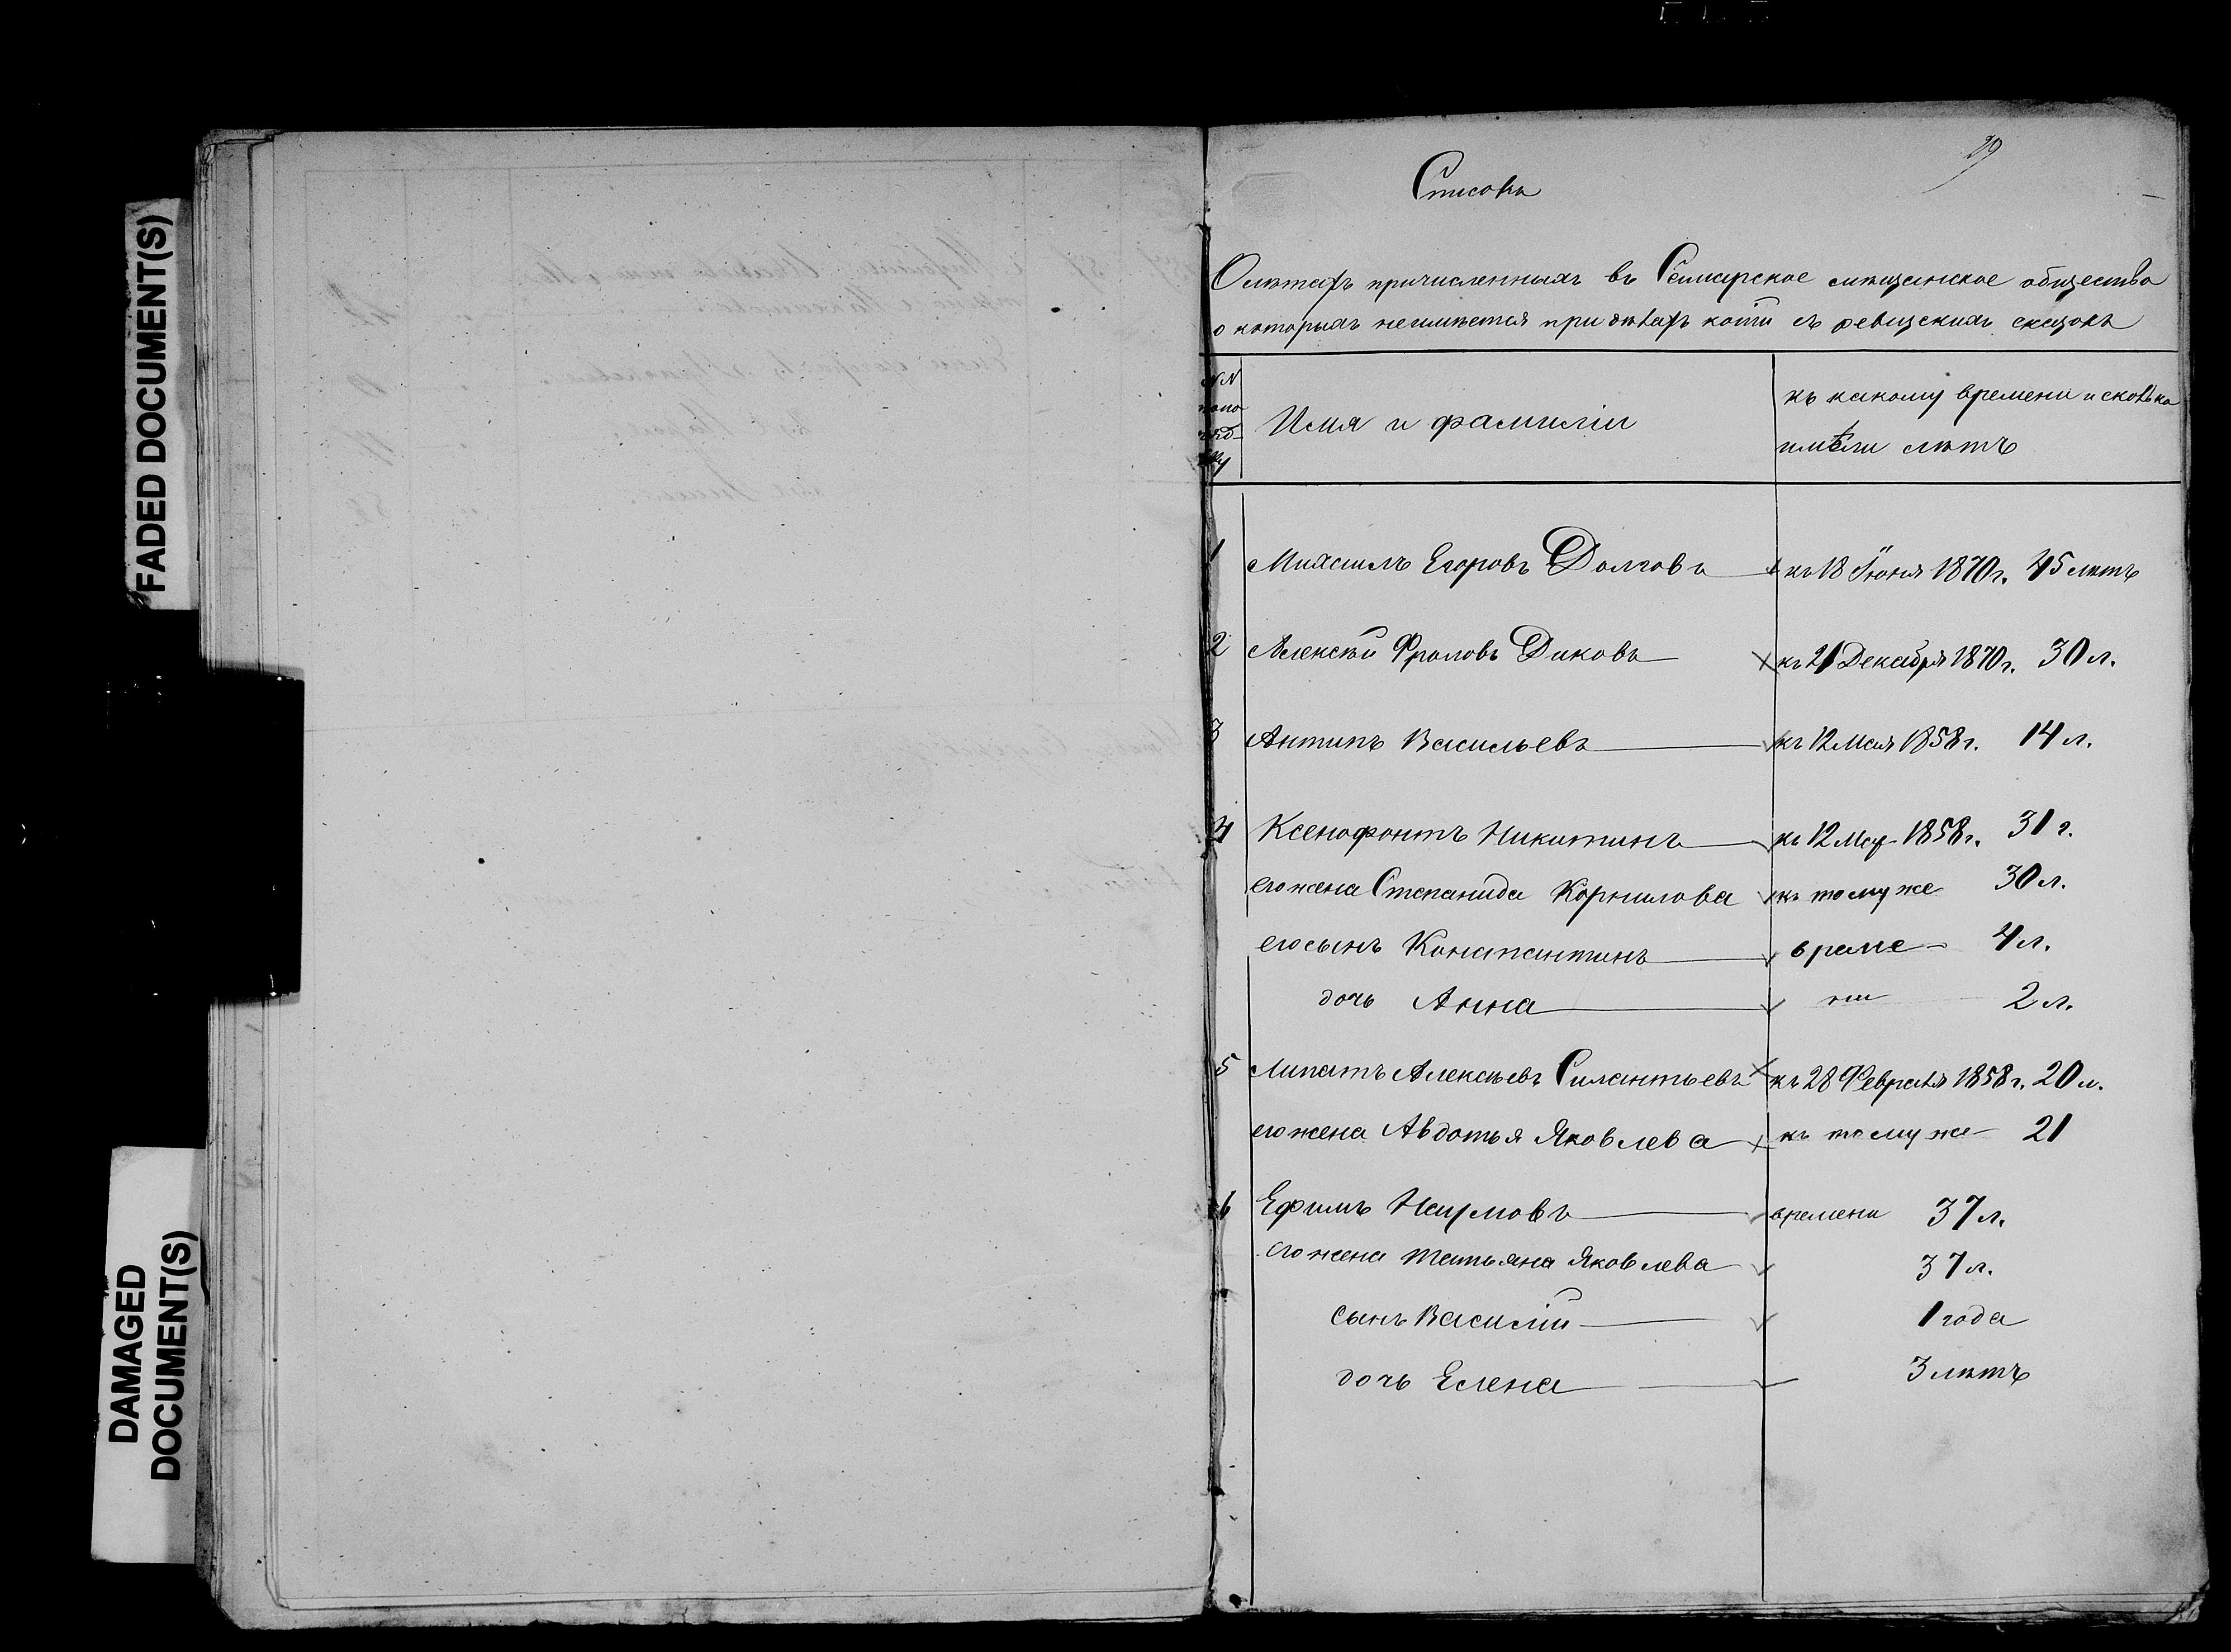 FADED DOCUMENT(S)
DAMAGED
DOCUMENT(S)
29
Списокъ
О лѣтахъ причисленныхъ въ Самарское мѣщанское общество
о которыхъ неимѣется при дѣлахъ копій съ ревизскихъ сказокъ
№№
попо
ряд-
ку
Имя и фамиліи
къ какому времени и сколько
имѣли лѣтъ
1 Михаилъ Егоровъ Долговъ къ 18 Іюня 1870 г. 45 лѣтъ
2 Алексѣй Фроловъ Диковъ къ 21 Декабря 1870 г. 30 л.
3 Антипъ Васильевъ къ 12 Мая 1858 г. 14 л.
4 Ксенофонтъ Никитинъ къ 12 Мая 1858 г. 31 г.
его жена Степанида Корнилова къ тому же 30 л.
его сынъ Константинъ време- 4 л.
дочь Анна ни 2 л.
5 Липатъ Алексѣевъ Силантьевъ къ 28 Февраля 1858 г. 20 л.
его жена Авдотья Яковлева къ тому же 21
6 Ефимъ Наумовъ времени 37 л.
его жена Татьяна Яковлева 37 л.
сынъ Василій 1 года
дочь Елена 3 лѣтъ